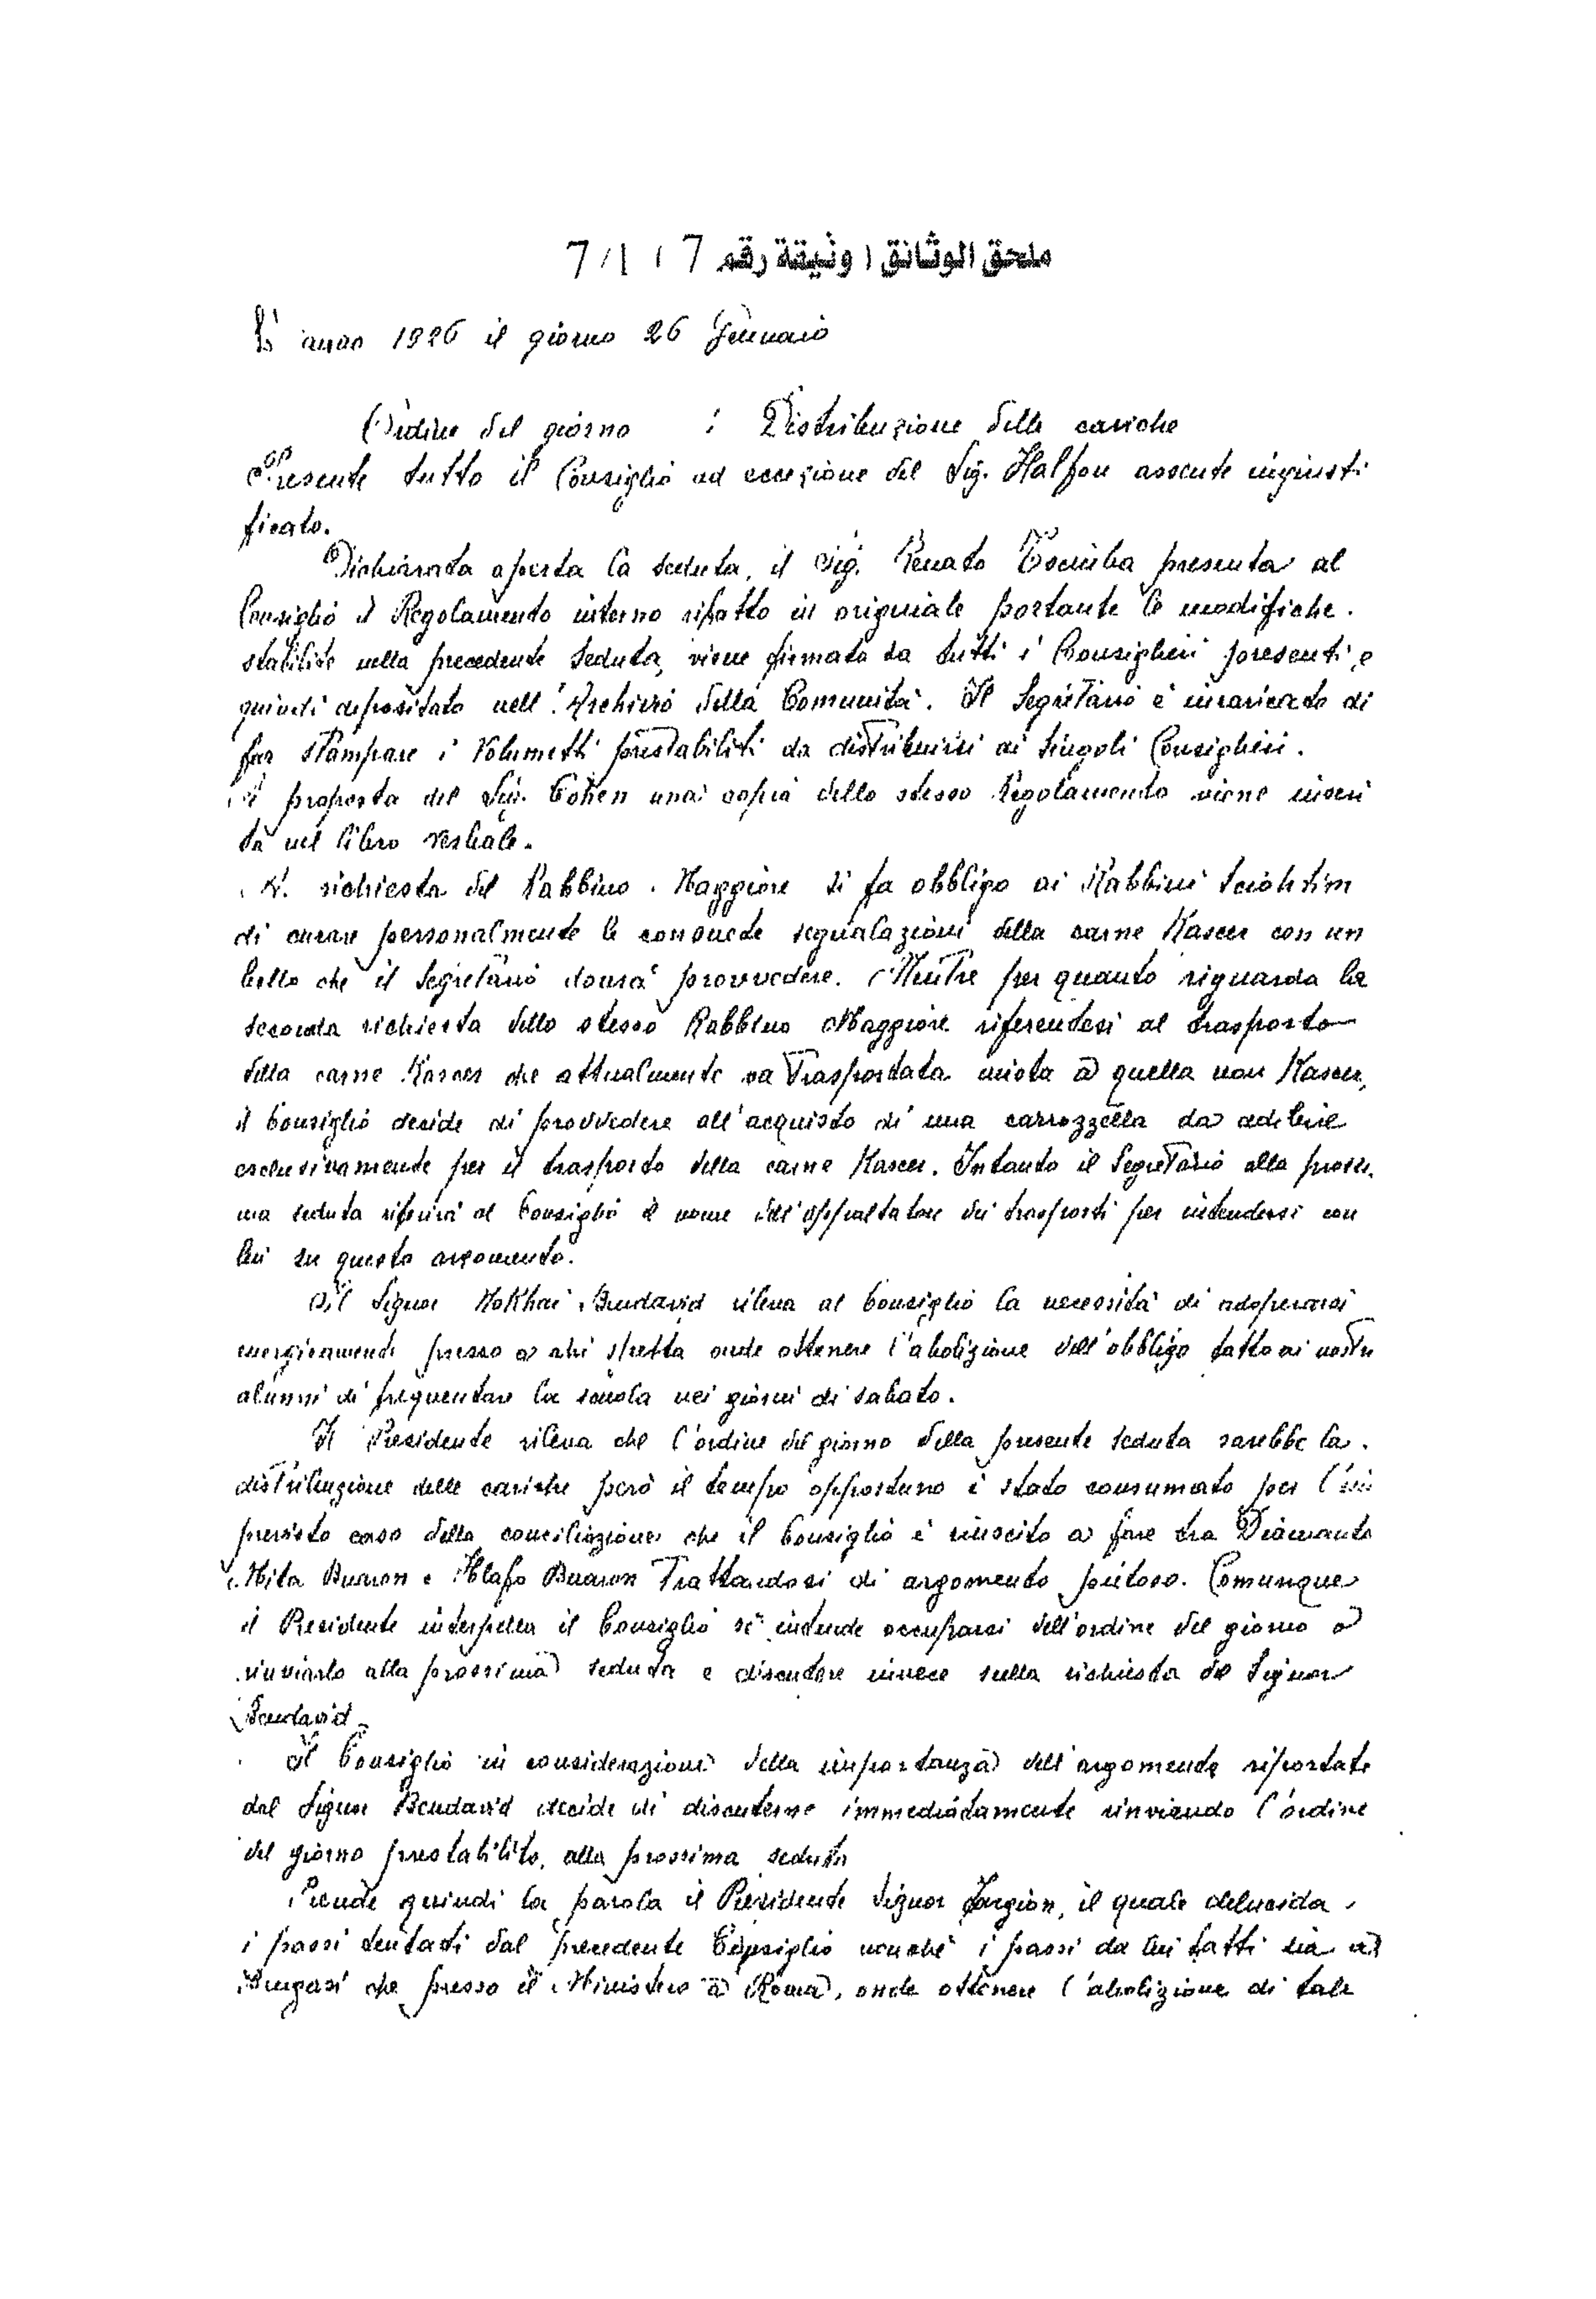 ملحق الوثائق ( وثيقة رقم 7 / 1 / 7
L' anno 1926 il giorno 26 Gennaio
Ordine del giorno : Distribuzione delle cariche
Presente tutto il Consiglio ad eccezione del Sig. Halfon assente ingiusti
ficato.
Dichiarata aperta la seduta, il Sig. Renato Tesciuba presenta al
Consiglio il Regolamento interno rifatto in originale portante le modifiche.
stabilite nella precedente seduta, viene firmato da tutti i Consiglieri presenti e
quindi depositato nell' Archivio della Comunità. Il Segretario è incaricato di
far stampare i Volumetti prestabiliti da distribuirsi ai singoli Consiglieri.
A proposta del Sig. Cohen una copia dello stesso Regolamento viene inseri
ta nel libro verbale.
A. richiesta del Rabbino Maggiore si fa obbligo ai Rabbini Sciohtim
di curare personalmente le consuete segnalazioni della carne Kascer con un
bollo che il Segretario dovrà provvedere. Mentre per quanto riguarda la
seconda richiesta dello stesso Rabbino Maggiore riferentesi al trasporto
della carne Kascer che attualmente va trasportata unita a quella non Kascer,
il Consiglio decide di provvedere all'acquisto di una carrozzella da adibirsi
esclusivamente per il trasporto della carne Kascer. Intanto il Segretario alla prossi
ma seduta riferirà al Consiglio il nome dell'appaltatore dei trasporti per intendersi con
lui su questo argomento.
Il Signor Mokhai Bendavid rileva al Consiglio la necessità di adoperarsi
energicamente presso a chi spetta onde ottenere l'abolizione dell'obbligo fatto ai nostri
alunni di frequentare la scuola nei giorni di sabato.
Il Presidente rileva che l'ordine del giorno della presente seduta sarebbe la
distribuzione delle cariche però il tempo opportuno è stato consumato per l'im
previsto caso della conciliazione che il Consiglio è riuscito a fare tra Diamante
Mita Buaron e Hlafo Buaron Trattandosi di argomento pietoso. Comunque
il Presidente interpella il Consiglio se intende occuparsi dell'ordine del giorno o
rinviarlo alla prossima seduta e discutere invece sulla richiesta del Signor
Bendavid.
Il Consiglio in considerazione della importanza dell'argomento riportato
dal Signor Bendavid decide di discuterne immediatamente rinviando l'ordine
del giorno prestabilito, alla prossima seduta
Prende quindi la parola il Presidente Signor Fargion, il quale delucida
i passi tentati dal precedente Consiglio nonché i passi da lui fatti sia a
Bengasi che presso il Ministero a Roma, onde ottenere l'abolizione di tale